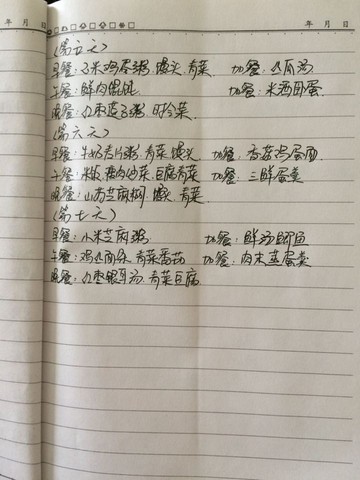 年 月 日
年 月 日
(第五天)
早餐:玉米鸡蛋粥 馒头 青菜 加餐:冬瓜汤
午餐:鲜肉馄饨 加餐:米酒卧蛋
晚餐:红枣莲子粥 时令菜
(第六天)
早餐:牛奶麦片粥 青菜 馒头 加餐:香菇鸡蛋面
午餐:米饭 瘦肉炒菜 豆腐青菜 加餐:三鲜蛋羹
晚餐:山药芝麻糊 馒头 青菜
(第七天)
早餐:小米芝麻粥 加餐:鲜汤鲫鱼
午餐:鸡丝面条 青菜香菇 加餐:肉末蒸蛋羹
晚餐:红枣银耳汤 青菜豆腐